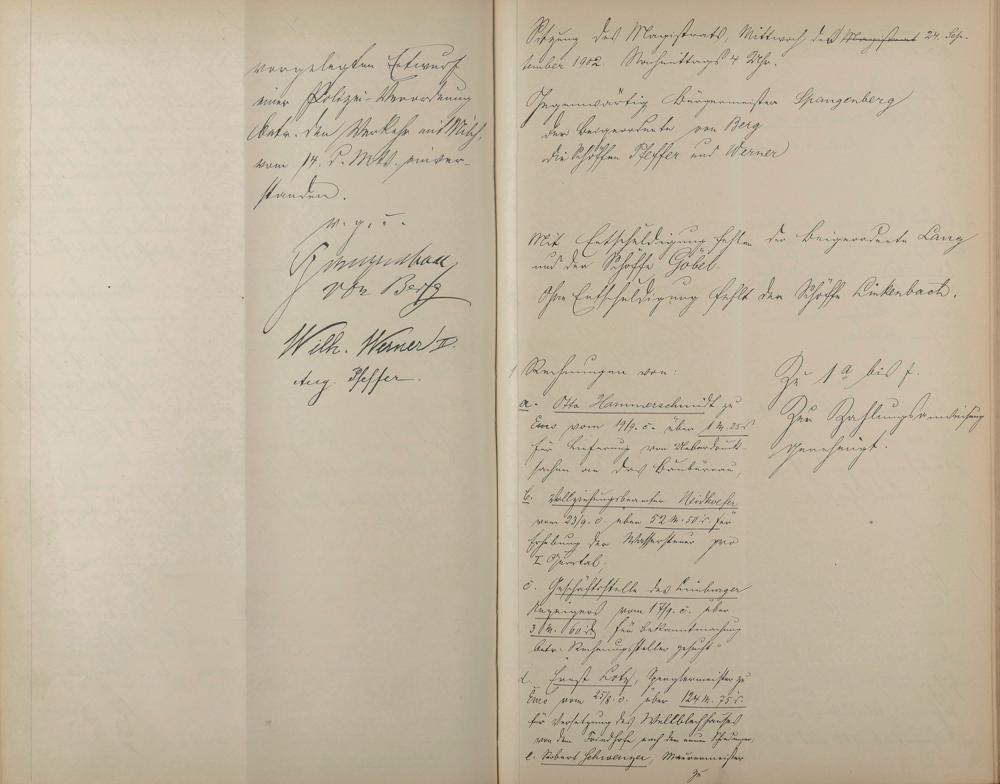 vorgelegten Entwurf
einer Polizei-Verordnung
betr. den Verkehr mit Milch,
vom 14. d. Mts. einver-
standen.
v. g. u.
Spangenberg
von Berg
Wilh. Werner II.
Aug. Pfeffer.
Sitzung des Magistrats, Mittwoch den Magistrat 24. Sep-
tember 1902. Nachmittags 4 Uhr.
Gegenwärtig Bürgermeister Spangenberg
der Beigeordnete von Berg
die Schöffen Pfeffer und Werner
Mit Entschuldigung fehlen der Beigeordnete Lang
und der Schöffe Göbel.
Ohne Entschuldigung fehlt der Schöffe Linkenbach.
1 Rechnungen von:
a. Otto Hammerschmidt zu
Ems vom 19/9. c. über 1 M. 25
für Lieferung von Ueberdruck-
sachen an das Baubüreau,
b. Vollziehungsbeamter Neidhoefer
vom 23/9. c. über 52 M. 50 für
Erhebung der Wassersteuer pro
I Quartal,
c. Geschäftsstelle des Limburger
Anzeigers vom 17/9. c. über
3 M. 60 für Bekanntmachung
betr. Rechnungssteller gesucht
d. Ernst Lotz, Spenglermeister zu
Ems vom 25/8. c. über 124 M. 75
für Versetzung des Wellblechhauses
von dem Friedhofe nach dem neuen
e. Robert Schwenzer, Maurermeister
zu
Zu 1 a bis f.
Zur Zahlungsanweisung
genehmigt.